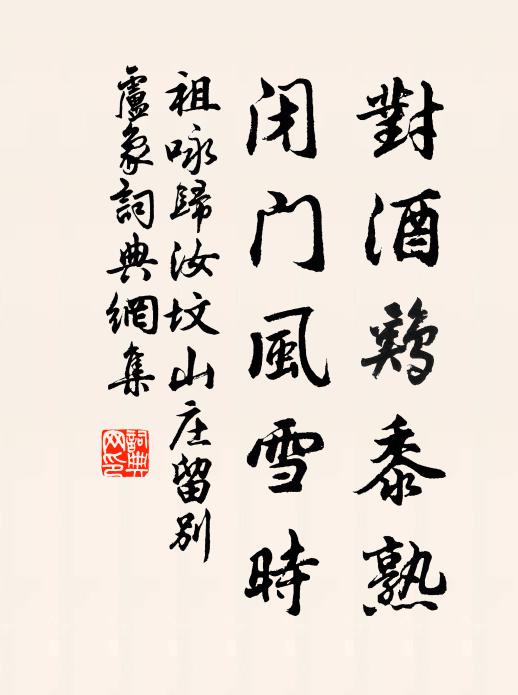 對酒鷄黍熟
闭门風雪時
祖咏歸汝坟山庄留别
盧象詞典網集
詞典网印